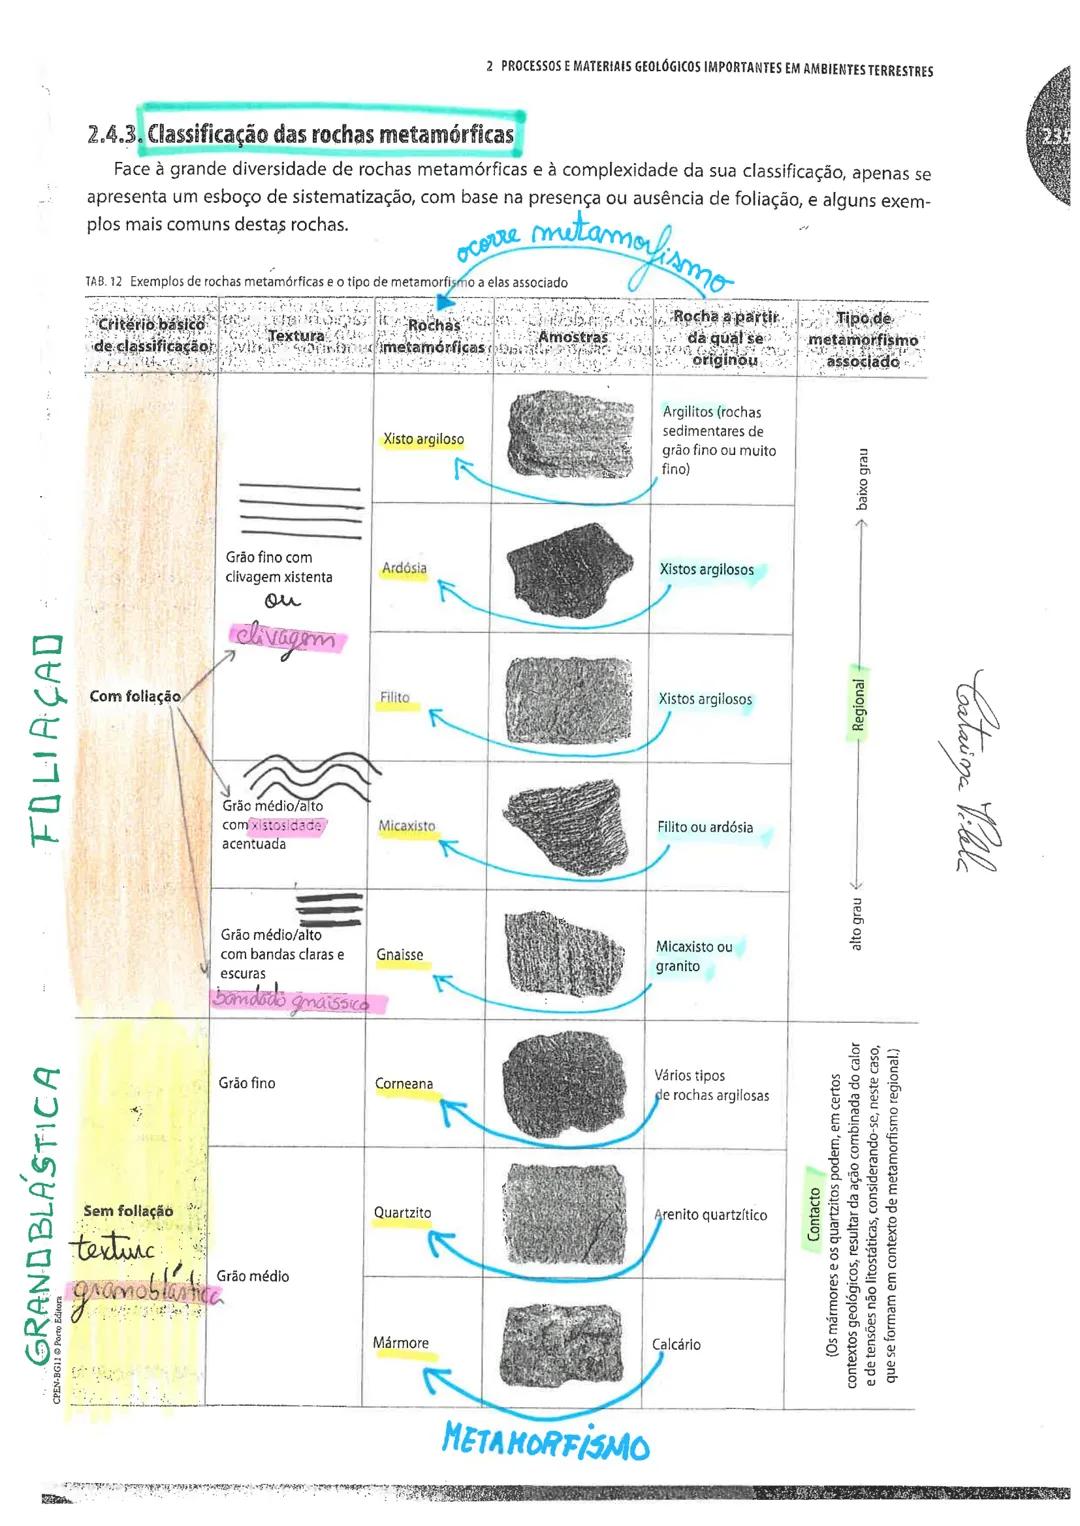 2 PROCESSOS E MATERIAIS GEOLÓGICOS IMPORTANTES EM AMBIENTES TERRESTRES
235
2.4.3. Classificação das rochas metamórficas
Face à grande diversidade de rochas metamórficas e à complexidade da sua classificação, apenas se
apresenta um esboço de sistematização, com base na presença ou ausência de foliação, e alguns exem-
plos mais comuns destas rochas.
ocorre metamorfismo
TAB. 12 Exemplos de rochas metamórficas e o tipo de metamorfismo a elas associado
Critério básico
de classificação
Textura
Rochas
metamórficas
Amostras
Rocha a partir
da qual se
originou
Tipo de
metamorfismo
associado
FOLIAÇÃO
Com foliação
Grão fino com
clivagem xistenta
ou
clivagem
Xisto argiloso
Argilitos (rochas
sedimentares de
grão fino ou muito
fino)
Ardósia
Xistos argilosos
Filito
Xistos argilosos
Grão médio/alto
com xistosidade
acentuada
Micaxisto
Filito ou ardósia
Grão médio/alto
com bandas claras e
escuras
bandado gnaissico
Gnaisse
Micaxisto ou
granito
baixo grau
Regional
alto grau
Catarina Vilela
GRANOBLÁSTICA
Sem foliação
textura
granoblástica
Grão fino
Corneana
Vários tipos
de rochas argilosas
Grão médio
Quartzito
Arenito quartzítico
Mármore
Calcário
Contacto
(Os mármores e os quartzitos podem, em certos
contextos geológicos, resultar da ação combinada do calor
e de tensões não litostáticas, considerando-se, neste caso,
que se formam em contexto de metamorfismo regional.)
METAMORFISMO
CPEN-BG11 © Porto Editora